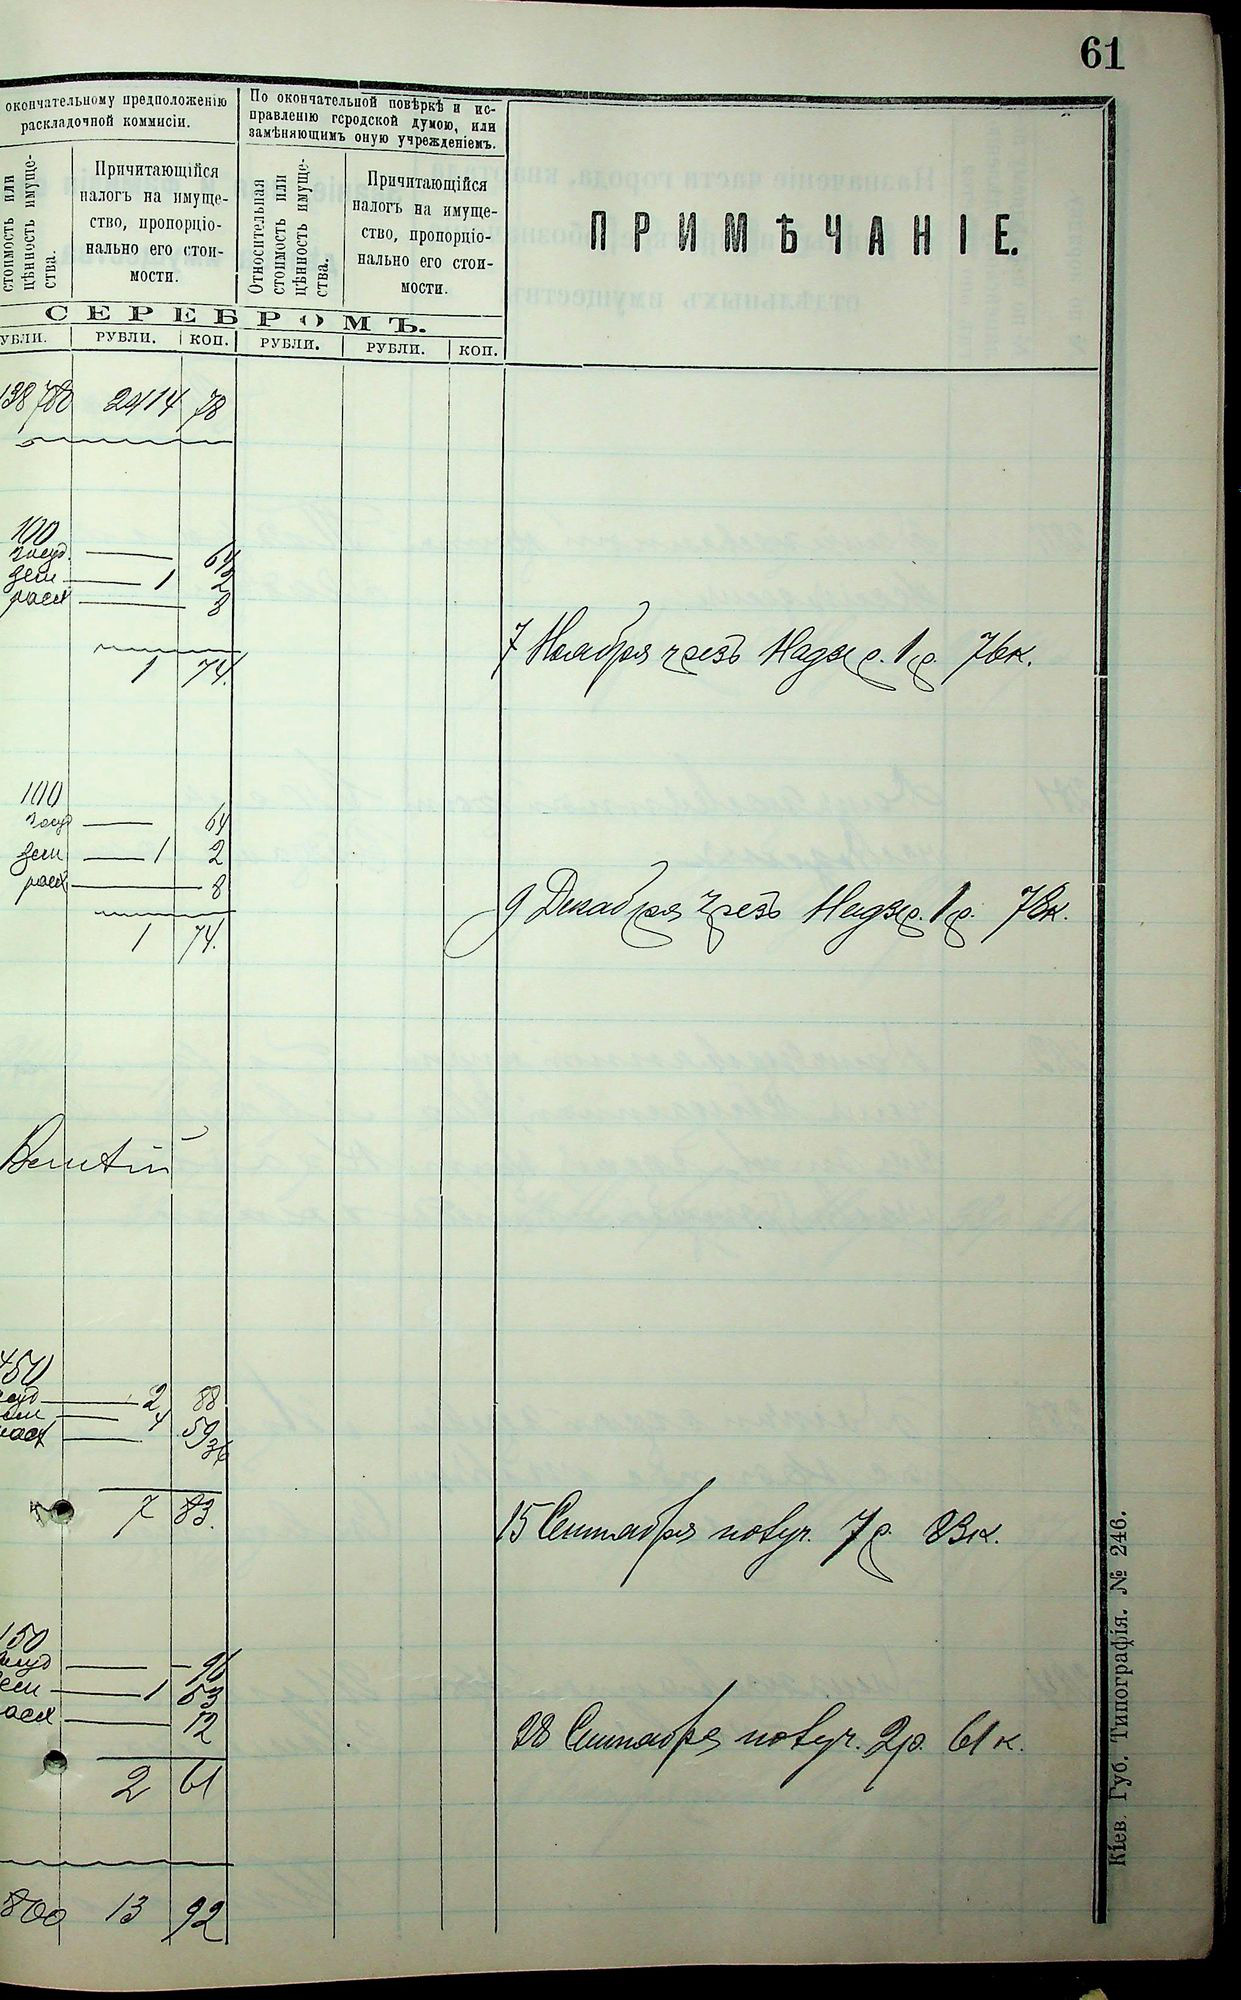 61
окончательному предположенію
раскладочной коммисіи.
По окончательной повѣркѣ и ис-
правленію городской думою, или
замѣняющимъ оную учрежденіемъ.
стоимость или
цѣнность имуще-
ства.
Причитающійся
налогъ на имуще-
ство, пропорціо-
нально его стои-
мости.
Относительная
стоимость или
цѣнность имуще-
ства.
Причитающійся
налогъ на имуще-
ство, пропорціо-
нально его стои-
мости.
ПРИМѢЧАНІЕ.
СЕРЕБРОМЪ.
УБЛИ. РУБЛИ. КОП. РУБЛИ. РУБЛИ. КОП.
138780 2414 78
100
госуд. 64
зем 1 2
расх 8
1 74.
7 Ноября чрезъ Надзр. 1 р. 76 к.
100
госуд 64
зем 1 2
расх 8
1 74.
9 Декабря чрезъ Надзр. 1 р. 78 к.
450
суд 2 88
ем 4 59
расх 36
7 83.
15 Сентября получ. 7 р. 83 к.
150
суд 96
ем 1 53
расх 12
2 61
28 Сентября получ. 2 р. 61 к.
800 13 92
Кіев. Губ. Типографія. № 246.